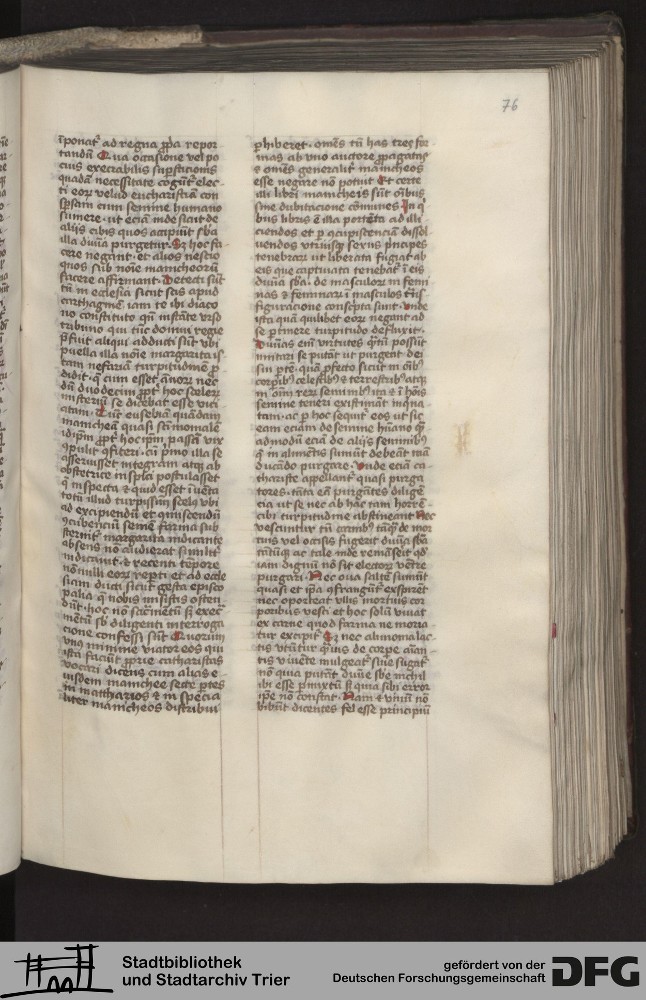 76
iponat ad regna ꝓpa repor
tandū Qua occasione vel po
cius execrabilis suꝑsticionis
quadā necessitate cogūt elec
ti eorꝫ velud eucharistiā con
sꝑsam cum semine humano
sumere · ut eciā inde sicut de
aliis cibis quos accipiūt sba
illa diuīa purgetur · Sꝫ hoc fa
cere negant · et alios nescio
quos sub noīe manicheorū
facere affirmant · Detecti sūt
tn̄ in ecclesia sicut scis apud
carthaginē iam te ibi diaco
no constituto qn̄ instāte vrso
tribuno qui tūc domui regie
p̄fuit aliqui adducti sūt vbi
puella illa noīe margarita is
tam nefariā turpitudinē ꝓ
didit · q̄ cum esset ānorꝫ nec
dū duodecim ꝓpt hoc sceler
misteriū se dicebat esse vici
atam · Tūc eusebiā quādam
manicheā quasi scīmonialē
idip̄m ꝓpt hoc ip̄m passā vix
ꝯpulit ꝯfiteri · cū p̄mo illa se
asseruisset integram atqꝫ ab
obstetrice inspici postulasset
q̄ inspecta et quid esset īuēta
totū illud turpissimū scelꝰ vbi
ad excipiendū et ꝯmiscendū
ꝯcubenciū semē farina sub
sternit margarita indicante
absens nō audierat similit
indicauit · Et recenti tempore
nōnulli eorꝫ repti et ad eccle
siam ducti sicut gesta episco
palia q̄ nobis misistis osten
dūt · hoc nō sacrmētū sꝫ execr
mētū sb diligenti interroga
cione confessi sūt Quorum
vnus nomine viator eos qui
ista faciūt ꝓprie catharistas
vocari dicens cum alias e
iusdem manichee secte ꝑtes
in mattharios et in specia
liter manicheos distribui
ꝑhiberet · omēs tn̄ has tres for
mas ab vno auctore ꝓpagatas
et omēs generalit manicheos
esse negare nō potuit Et certe
illi libri manicheis sūt oībus
sine dubitacione cōmunes · In q̄
bus libris ē illa portēta ad illi
ciendos et ꝑ ꝯcupiscenciā dissol
uendos vtriusqꝫ sexus pncipes
tenebrarꝫ ut liberata fugiat ab
eis que captiuata tenebat ī eis
diuīa sba · de masculorꝫ in femi
nas et feminarꝫ ī masculos trās
figuracione conscpta sunt · Unde
ista quā quilibet eorꝫ negant ad
se ptinere turpitudo defluxit ·
Diuinas em̄ virtutes q̄tū possūt
imitari se putāt ut purgent dei
sui ptē · quā ꝓfecto sicut in oībꝰ
corpibꝰ celestibꝰ et terrestribꝰ atqꝫ
in oīm rerꝫ seminibꝰ ita et ī hoīs
semine teneri existimāt inqna
tam · ac ꝑ hoc sequit eos ut sic
eam eciam de semine hūano q̄
admodū eciā de aliis seminibꝰ
q̄ in alimētis sumūt debeāt mā
ducādo purgare · Unde eciā ca
tharistę appellant quasi purga
tores · tāta eā purgātes diligē
cia ut se nec ab hac tam horrē
cibi turpitudine abstineant Nec
vescuntur tn̄ carnibꝰ tāqꝫ de mor
tuis vel occisis fugerit diuīa sba
tātūqꝫ ac tale inde remāserit qd
iam dignū nō sit electorꝫ vētre
purgari · Nec oua saltē sumūt
quasi et ip̄a qn̄ frangūt exspirēt
nec oporteat vllis mortuis cor
poribus vesci · et hoc solū viuat
ex carne quod farina ne moria
tur excipit Sꝫ nec alimonia lac
tis vtūtur q̄uis de corpe aīan
tis viuēte mulgeat siue sugat
nō quia putāt diuīe sbe nichil
ibi esse pmixtū sꝫ quia sibi error
ip̄e nō constat · Nam et vinū nō
bibūt dicentes fel esse principiū
Stadtbibliothek
und Stadtarchiv Trier
gefördert von der
Deutschen Forschungsgemeinschaft
DFG